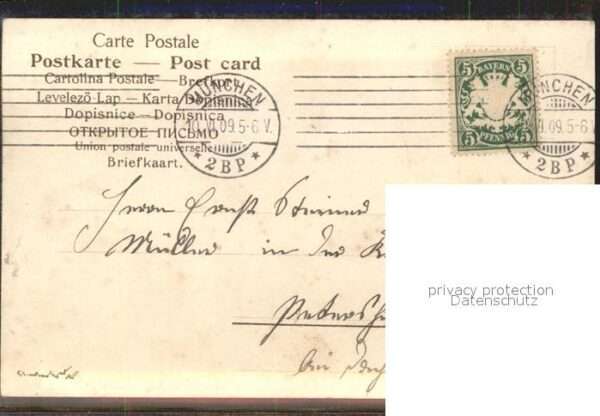 Carte Postale
Postkarte — Post card
Cartolina Postale — Brefkort
Levelező-Lap — Karta
Dopisnice — Dopisnica
ОТКРЫТОЕ ПИСЬМО
Union postale universelle
Briefkaart.
MÜNCHEN
09. 5-6 V.
* 2BP *
5 BAYERN 5
5 PFENNIG 5
MÜNCHEN
09. 5-6 V.
* 2BP *
Herrn Ernst
Müller in der
Petersh
bei Dach
privacy protection
Datenschutz